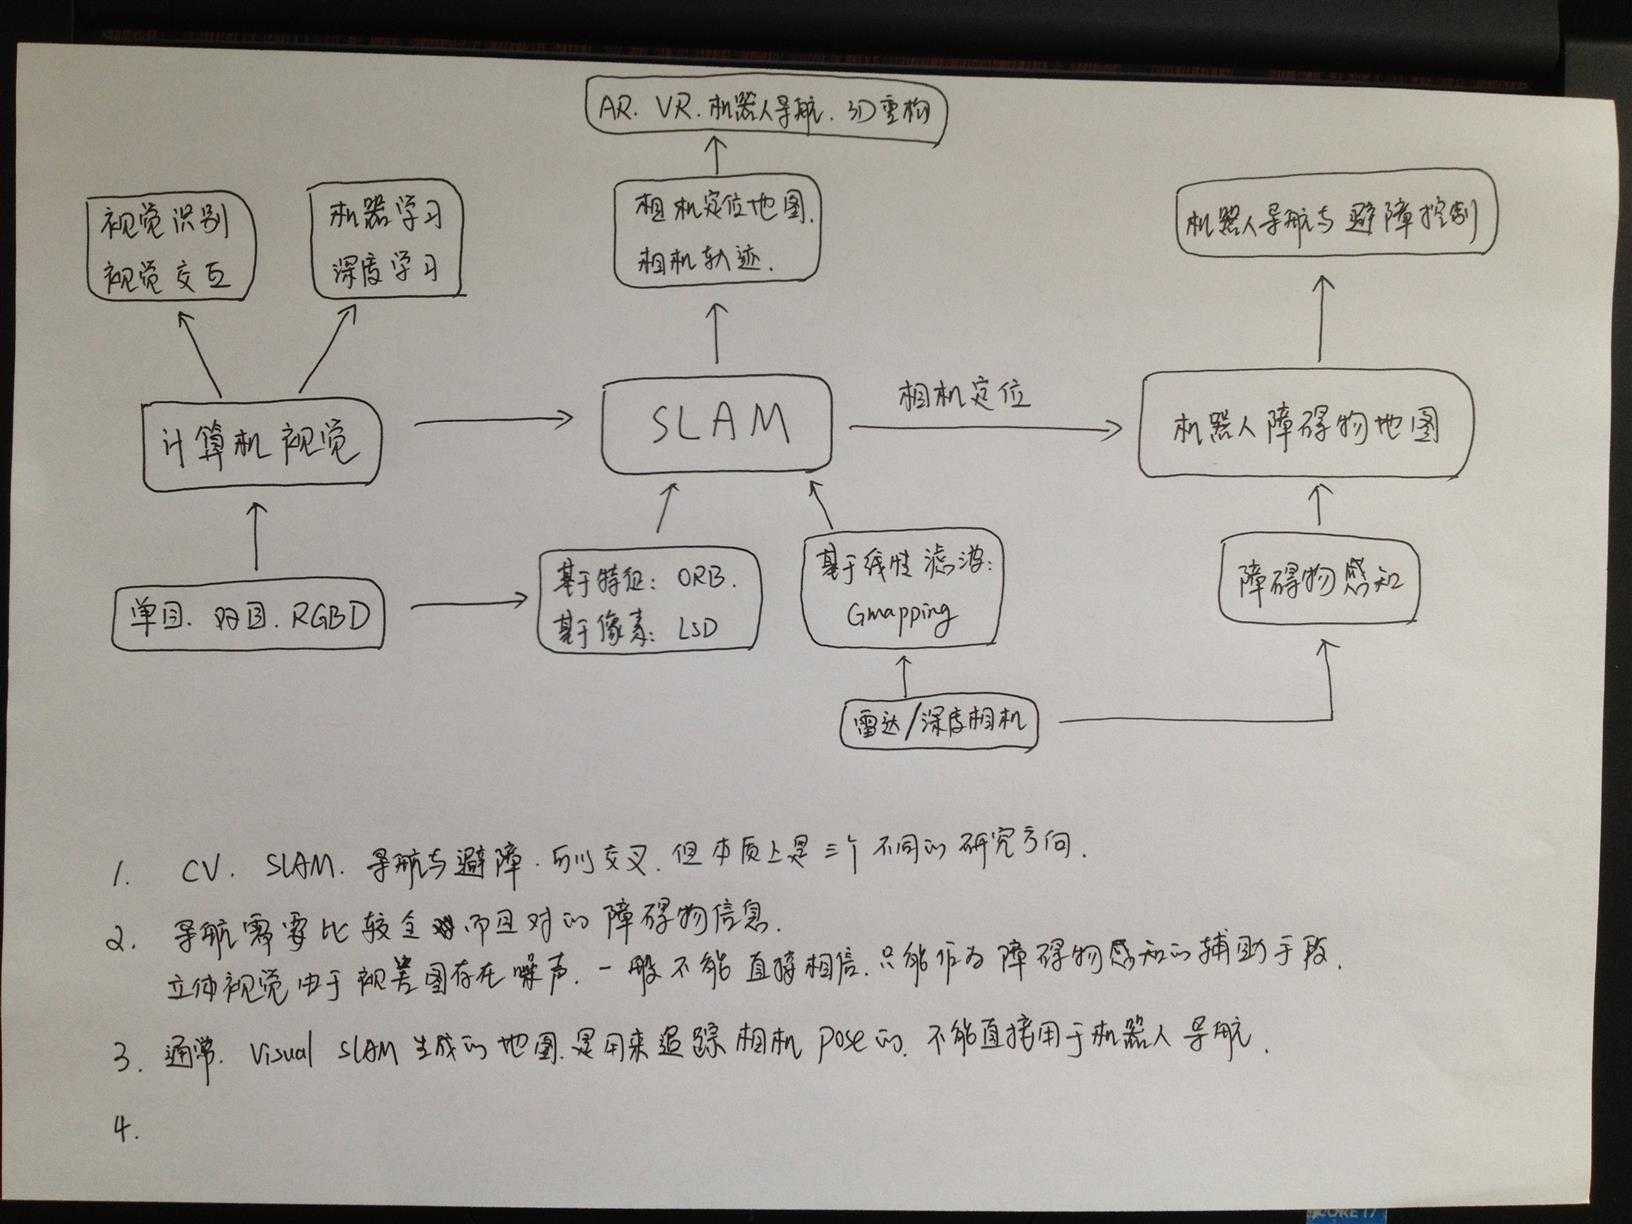 AR. VR. 机器人导航. 3D重构
视觉识别
视觉交互
机器学习
深度学习
相机定位地图.
相机轨迹.
机器人导航与避障控制
计算机视觉
SLAM
相机定位
机器人障碍物地图
单目. 双目. RGBD
基于特征: ORB.
基于像素: LSD
基于线性滤波:
Gmapping
障碍物感知
雷达/深度相机
1. CV. SLAM. 导航与避障. 交叉. 但本质上是三个不同的研究方向.
2. 导航需要比较全而且对的障碍物信息.
立体视觉由于视差图存在噪声. 一般不能直接相信. 只能作为障碍物感知的辅助手段.
3. 通常. Visual SLAM 生成的地图. 是用来追踪相机 pose 的. 不能直接用于机器人导航.
4.
CORE i7